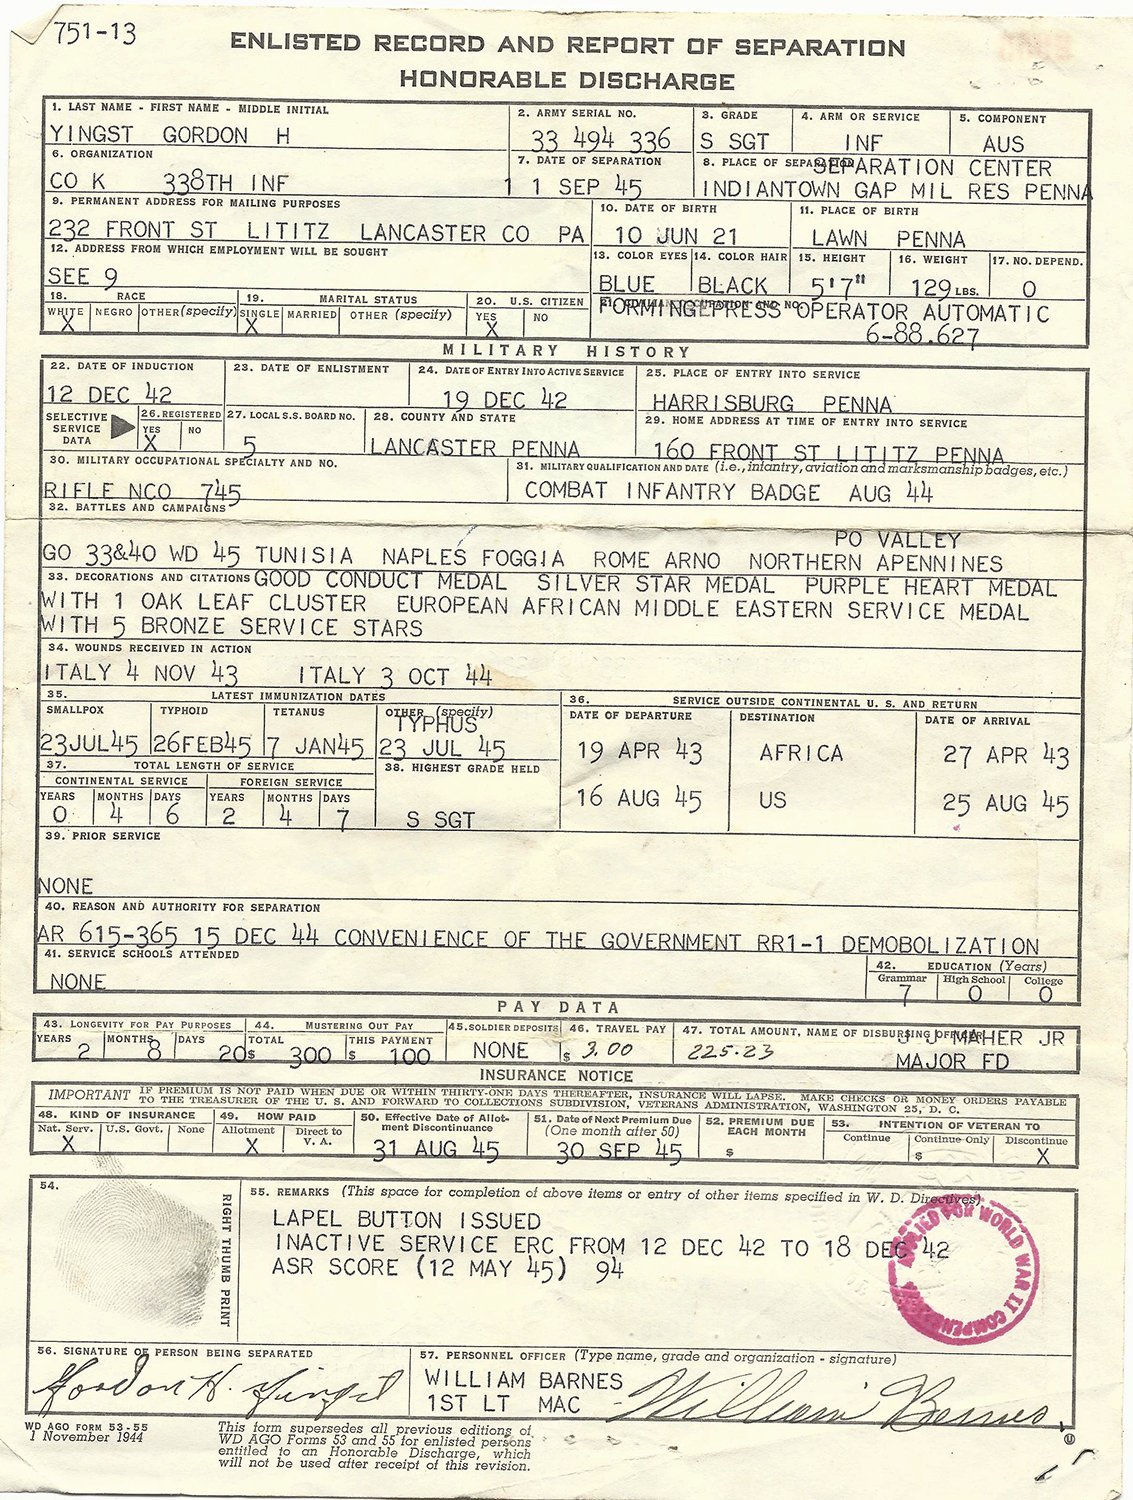 751-13
ENLISTED RECORD AND REPORT OF SEPARATION
HONORABLE DISCHARGE
1. LAST NAME - FIRST NAME - MIDDLE INITIAL
YINGST GORDON H
2. ARMY SERIAL NO.
33 494 336
3. GRADE
S SGT
4. ARM OR SERVICE
INF
5. COMPONENT
AUS
6. ORGANIZATION
CO K 338TH INF
7. DATE OF SEPARATION
1 1 SEP 45
8. PLACE OF SEPARATION
SEPARATION CENTER
INDIANTOWN GAP MIL RES PENNA
9. PERMANENT ADDRESS FOR MAILING PURPOSES
232 FRONT ST LITITZ LANCASTER CO PA
10. DATE OF BIRTH
10 JUN 21
11. PLACE OF BIRTH
LAWN PENNA
12. ADDRESS FROM WHICH EMPLOYMENT WILL BE SOUGHT
SEE 9
13. COLOR EYES
BLUE
14. COLOR HAIR
BLACK
15. HEIGHT
5'7"
16. WEIGHT
129 LBS.
17. NO. DEPEND.
0
18. RACE
WHITE NEGRO OTHER (specify)
X
19. MARITAL STATUS
SINGLE MARRIED OTHER (specify)
X
20. U.S. CITIZEN
YES NO
X
21. CIVILIAN OCCUPATION AND NO.
FORMING PRESS OPERATOR AUTOMATIC
6-88.627
MILITARY HISTORY
22. DATE OF INDUCTION
12 DEC 42
23. DATE OF ENLISTMENT
24. DATE OF ENTRY INTO ACTIVE SERVICE
19 DEC 42
25. PLACE OF ENTRY INTO SERVICE
HARRISBURG PENNA
SELECTIVE SERVICE DATA
26. REGISTERED
YES NO
X
27. LOCAL S.S. BOARD NO.
5
28. COUNTY AND STATE
LANCASTER PENNA
29. HOME ADDRESS AT TIME OF ENTRY INTO SERVICE
160 FRONT ST LITITZ PENNA
30. MILITARY OCCUPATIONAL SPECIALTY AND NO.
RIFLE NCO 745
31. MILITARY QUALIFICATION AND DATE (i.e., infantry, aviation and marksmanship badges, etc.)
COMBAT INFANTRY BADGE AUG 44
32. BATTLES AND CAMPAIGNS
PO VALLEY
GO 33&40 WD 45 TUNISIA NAPLES FOGGIA ROME ARNO NORTHERN APENNINES
33. DECORATIONS AND CITATIONS GOOD CONDUCT MEDAL SILVER STAR MEDAL PURPLE HEART MEDAL
WITH 1 OAK LEAF CLUSTER EUROPEAN AFRICAN MIDDLE EASTERN SERVICE MEDAL
WITH 5 BRONZE SERVICE STARS
34. WOUNDS RECEIVED IN ACTION
ITALY 4 NOV 43 ITALY 3 OCT 44
35. LATEST IMMUNIZATION DATES
SMALLPOX TYPHOID TETANUS OTHER (specify)
TYPHUS
23JUL45 26FEB45 7 JAN45 23 JUL 45
36. SERVICE OUTSIDE CONTINENTAL U. S. AND RETURN
DATE OF DEPARTURE DESTINATION DATE OF ARRIVAL
19 APR 43 AFRICA 27 APR 43
16 AUG 45 US 25 AUG 45
37. TOTAL LENGTH OF SERVICE
CONTINENTAL SERVICE FOREIGN SERVICE
YEARS MONTHS DAYS YEARS MONTHS DAYS
0 4 6 2 4 7
38. HIGHEST GRADE HELD
S SGT
39. PRIOR SERVICE
NONE
40. REASON AND AUTHORITY FOR SEPARATION
AR 615-365 15 DEC 44 CONVENIENCE OF THE GOVERNMENT RR1-1 DEMOBOLIZATION
41. SERVICE SCHOOLS ATTENDED
NONE
42. EDUCATION (Years)
Grammar High School College
7 0 0
PAY DATA
43. LONGEVITY FOR PAY PURPOSES
YEARS MONTHS DAYS
2 8 20
44. MUSTERING OUT PAY
TOTAL THIS PAYMENT
$ 300 $ 100
45. SOLDIER DEPOSITS
NONE
46. TRAVEL PAY
$ 3.00
47. TOTAL AMOUNT, NAME OF DISBURSING OFFICER
225.23
J J MAHER JR
MAJOR FD
INSURANCE NOTICE
IMPORTANT IF PREMIUM IS NOT PAID WHEN DUE OR WITHIN THIRTY-ONE DAYS THEREAFTER, INSURANCE WILL LAPSE. MAKE CHECKS OR MONEY ORDERS PAYABLE
TO THE TREASURER OF THE U. S. AND FORWARD TO COLLECTIONS SUBDIVISION, VETERANS ADMINISTRATION, WASHINGTON 25, D. C.
48. KIND OF INSURANCE
Nat. Serv. U.S. Govt. None
X
49. HOW PAID
Allotment Direct to V. A.
X
50. Effective Date of Allotment Discontinuance
31 AUG 45
51. Date of Next Premium Due
(One month after 50)
30 SEP 45
52. PREMIUM DUE EACH MONTH
$
53. INTENTION OF VETERAN TO
Continue Continue Only Discontinue
$ X
54.
RIGHT THUMB PRINT
55. REMARKS (This space for completion of above items or entry of other items specified in W. D. Directives)
LAPEL BUTTON ISSUED
INACTIVE SERVICE ERC FROM 12 DEC 42 TO 18 DEC 42
ASR SCORE (12 MAY 45) 94
APPLIED FOR WORLD WAR II
56. SIGNATURE OF PERSON BEING SEPARATED
Gordon H. Yingst
57. PERSONNEL OFFICER (Type name, grade and organization - signature)
WILLIAM BARNES
1ST LT MAC
William Barnes
WD AGO FORM 53-55
1 November 1944
This form supersedes all previous editions of
WD AGO Forms 53 and 55 for enlisted persons
entitled to an Honorable Discharge, which
will not be used after receipt of this revision.